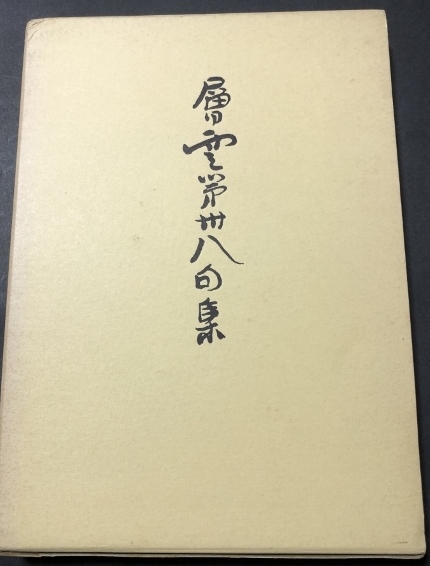 層雲第卅八句集